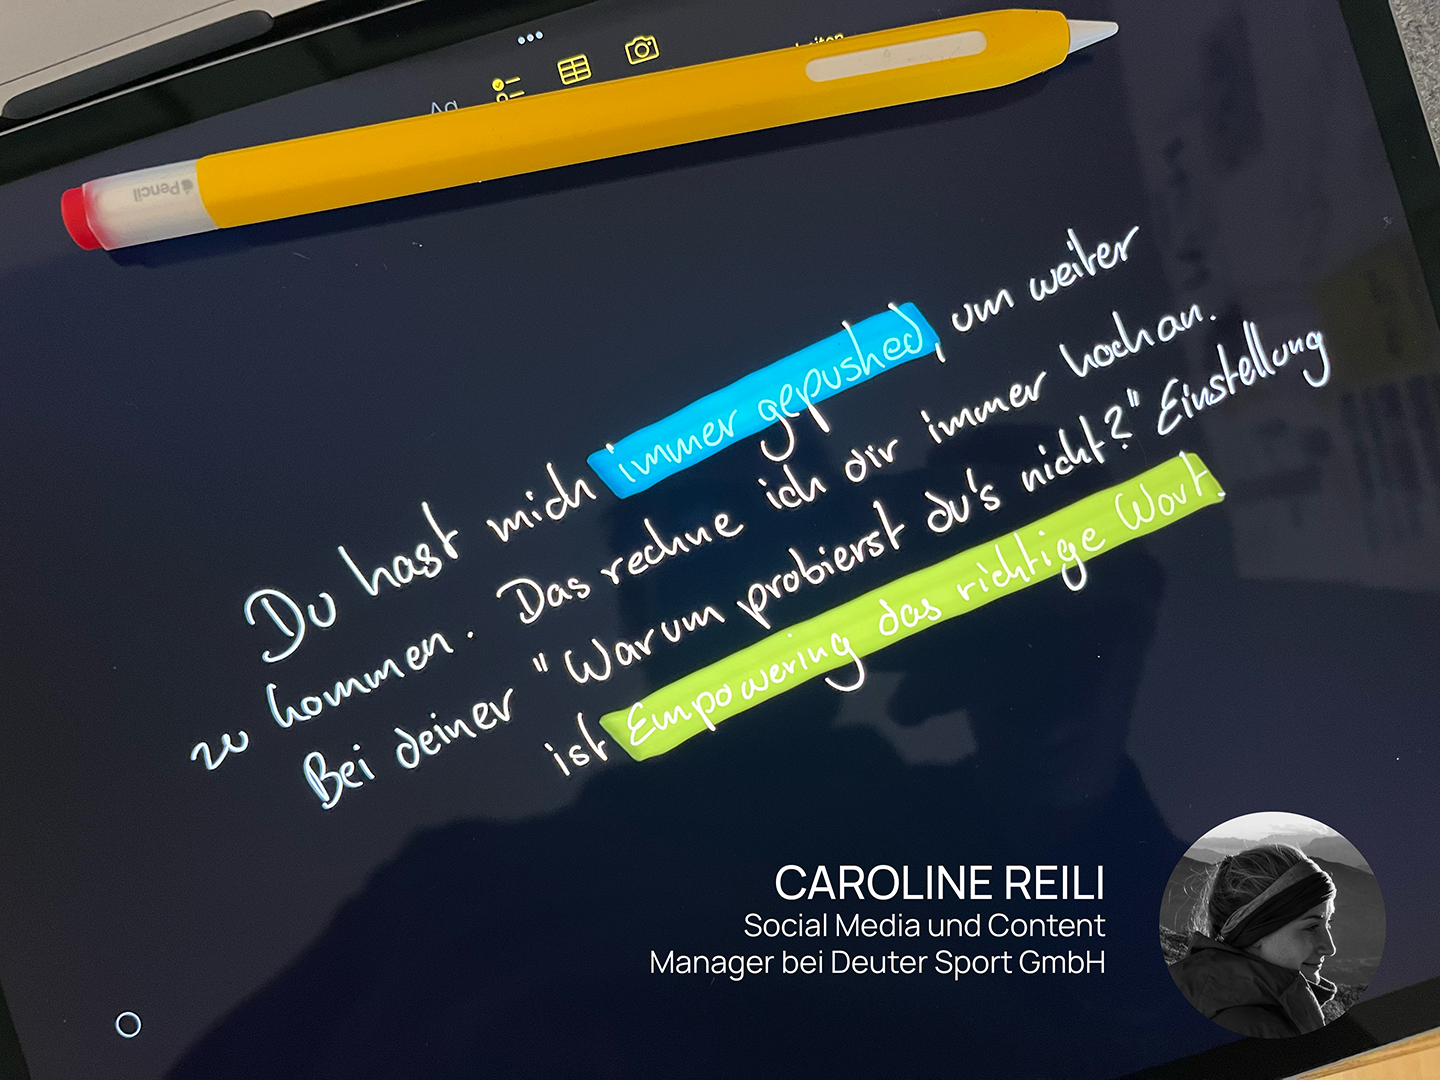 Aa
Pencil
Du hast mich immer gepushed, um weiter
zu kommen. Das rechne ich dir immer hoch an.
Bei deiner "Warum probierst du's nicht?" Einstellung
ist Empowering das richtige Wort.
CAROLINE REILI
Social Media und Content
Manager bei Deuter Sport GmbH